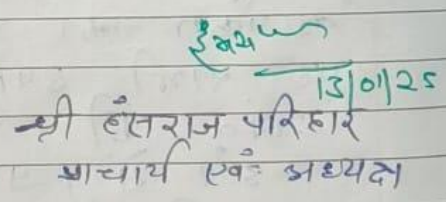 13/01/25
श्री हंसराज परिहार
प्राचार्य एवं अध्यक्ष